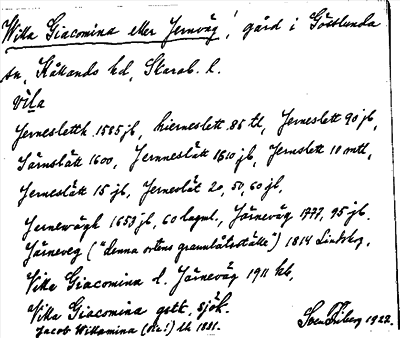 Villa Giacomina eller Jernväg, gård i Götlunda
sn, Kåkinds hd, Skarab. l.
vila
Jernesletth 1565 jb, hierneslett 86 tl, Jerneslett 90 jb,
Järnslätt 1600, Jernneslätt 1610 jb, Jernslett 10 mtl,
Jerneslätt 15 jb, Jerneslät 20, 50, 60 jb,
Jernewägh 1653 jb, 60 Järneväg 1777, 95 jb.
Järneveg ("denna ortens granulåtsställe") 1814 Lindskog,
Villa Giacomina l. Järneväg 1911 kb,
Villa Giacomina gstt. sjök.
Jacob Willamina (sic!) lk 1881. Sven Friberg 1922.